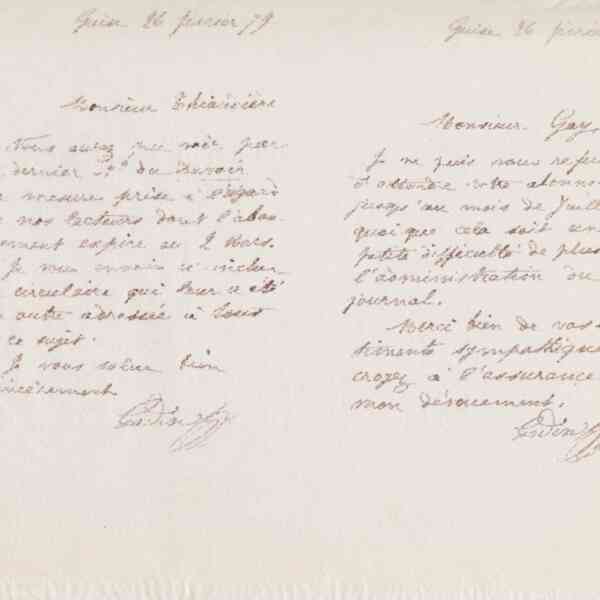 Guise 26 février 79
Monsieur
Vous aurez pu voir par
dernier Nº du Devoir
mesure prise à l'égard
nos lecteurs dont l'abon-
nement expire au 2 Mars.
Je vous envoie ci inclus
circulaire qui leur a été
outre adressée à tous
ce sujet.
Je vous salue bien
sincèrement
Godin
Guise 26 février
Monsieur Gay,
Je ne puis vous refu
d'attendre votre abonne
jusqu'au mois de Juill
quoique cela soit un
petite difficulté de plus
l'administration du
journal.
Merci bien de vos
timents sympathique
croyez à l'assurance
mon dévouement.
Godin